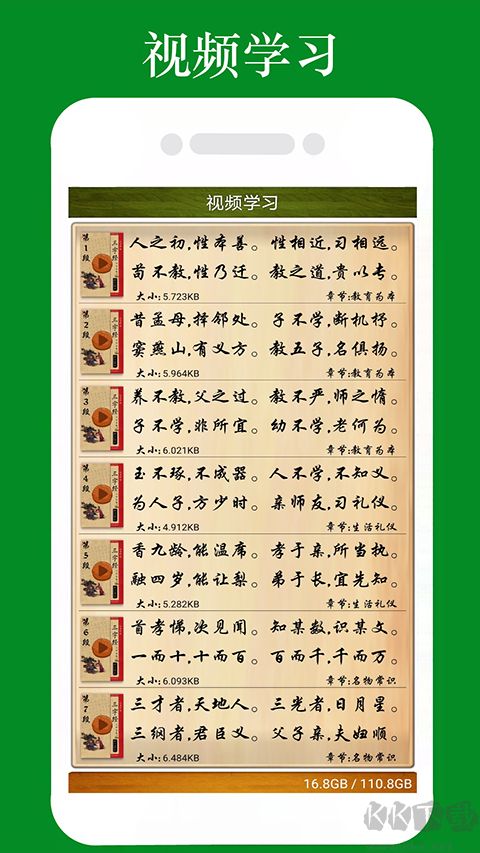 视频学习
视频学习
第1段
三字经
人之初,性本善。 性相近,习相远。
苟不教,性乃迁。 教之道,贵以专。
大小:5.723KB 章节:教育为本
第2段
三字经
昔孟母,择邻处。 子不学,断机杼。
窦燕山,有义方。 教五子,名俱扬。
大小:5.964KB 章节:教育为本
第3段
三字经
养不教,父之过。 教不严,师之惰。
子不学,非所宜。 幼不学,老何为。
大小:6.021KB 章节:教育为本
第4段
三字经
玉不琢,不成器。 人不学,不知义。
为人子,方少时。 亲师友,习礼仪。
大小:4.912KB 章节:生活礼仪
第5段
三字经
香九龄,能温席。 孝于亲,所当执。
融四岁,能让梨。 弟于长,宜先知。
大小:5.282KB 章节:生活礼仪
第6段
三字经
首孝悌,次见闻。 知某数,识某文。
一而十,十而百。 百而千,千而万。
大小:6.093KB 章节:名物常识
第7段
三字经
三才者,天地人。 三光者,日月星。
三纲者,君臣义。 父子亲,夫妇顺。
大小:6.484KB 章节:名物常识
16.8GB / 110.8GB
KK下载